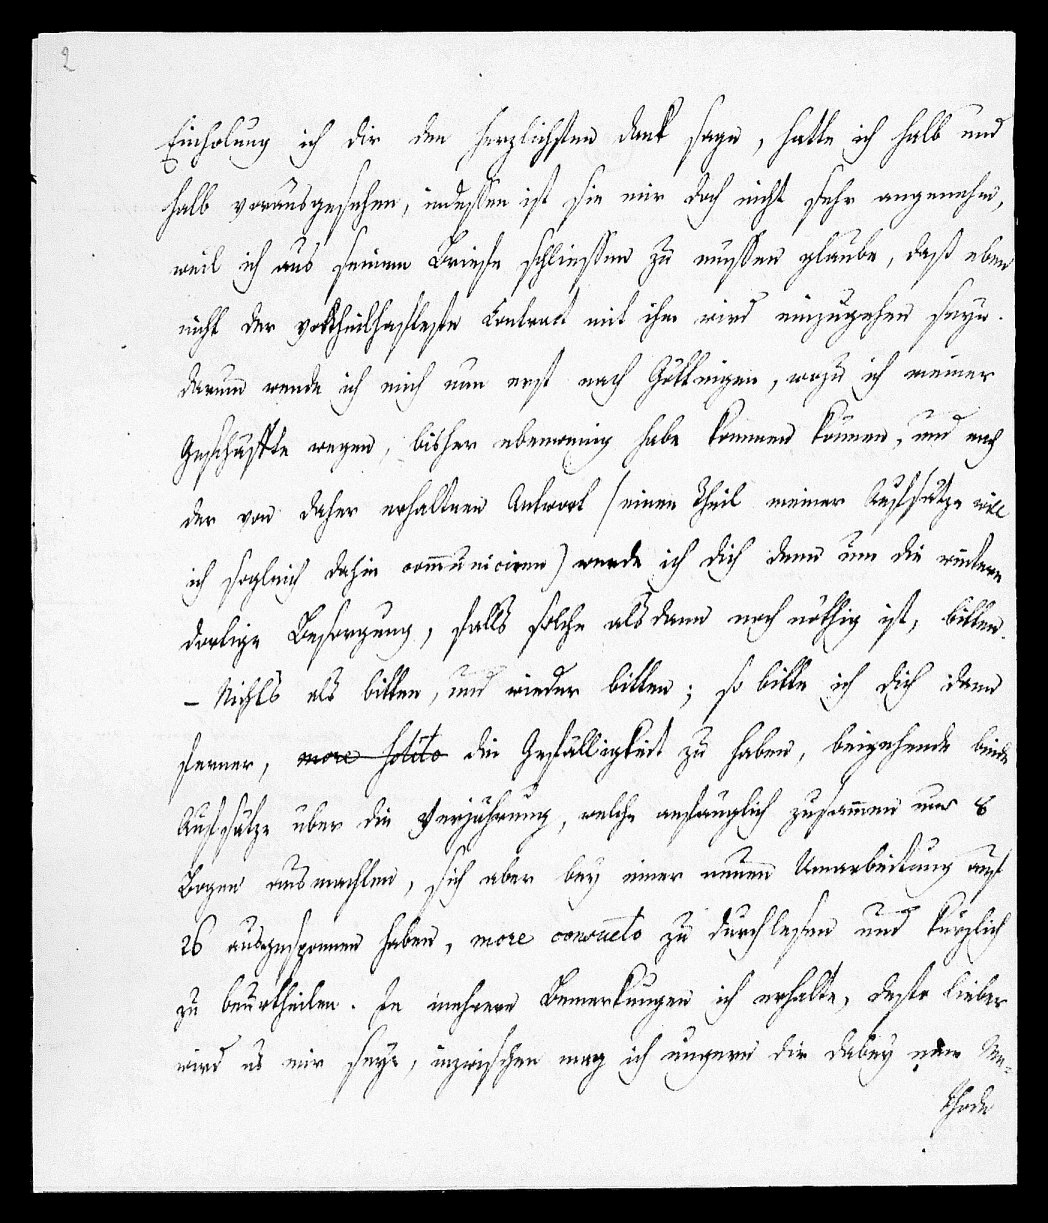 2
Einholung ich dir den herzlichsten dank sage, hatte ich halb und
halb vorausgesehen, indessen ist sie mir doch nicht sehr angenehm,
weil ich aus seinem Briefe schliessen zu müssen glaube, daß eben
nicht der vortheilhafteste Contract mit ihm wird einzugehen seyn.
darum wende ich mich nun erst nach Göttingen, wozu ich meiner
Geschäffte wegen, bisher ebenwenig habe kommen können, und nach
der von daher erhaltnen Antwort (einen Theil meiner Aufsätze will
ich sogleich dahin com̅uniciren) werde ich dich denn um die weitere
dortige Besorgung, falls solche alsdann noch nöthig ist, bitten.
– Nichts als bitten, und wieder bitten; so bitte ich dich dann
ferner, more solito die Gefälligkeit zu haben, beigehende beide
Aufsätze über die Verjährung, welche anfänglich zusam̅en nur 8
Bogen ausmachten, sich aber bey einer neuen Umarbeitung auf
26 ausgesponnen haben, more consueto zu durchlesen und kürzlich
zu beurtheilen. Je mehrere Bemerkungen ich erhalte, desto lieber
wird es mir seyn, inzwischen mag ich ungern dir dabey eine Me=
thode